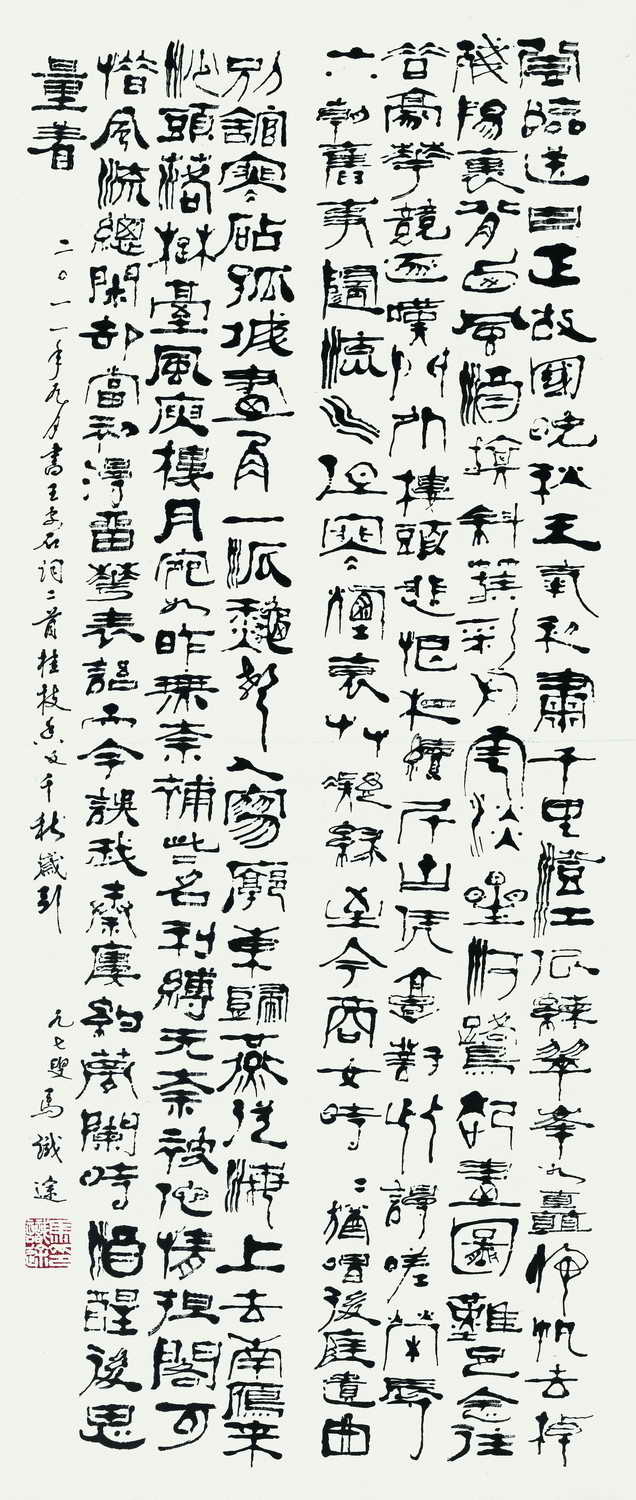 登臨送目正故國晚秋天氣初肅千里澄江似練翠峯如矗歸帆去棹
殘陽裏背西風酒旗斜簇彩舟雲淡星河鷺起畫圖難足念往
昔豪華競逐嘆門外樓頭悲恨相續千古憑高對此謾嗟榮辱
六朝舊事隨流水但寒煙衰草凝綠至今商女時〻猶唱後庭遺曲
別館寒砧孤城畫角一派秋聲入寥廓東歸燕從海上去南鴈來
沙頭落楚臺風庾樓月宛如昨無奈被些名利縛无奈被他情担閣可
惜風流總閑却當初漫留華表語而今誤我秦樓約夢闌時酒醒後思
量着
二〇一一年九月書王安石詞二首桂枝香又千秋歲引
九七叟馬識途